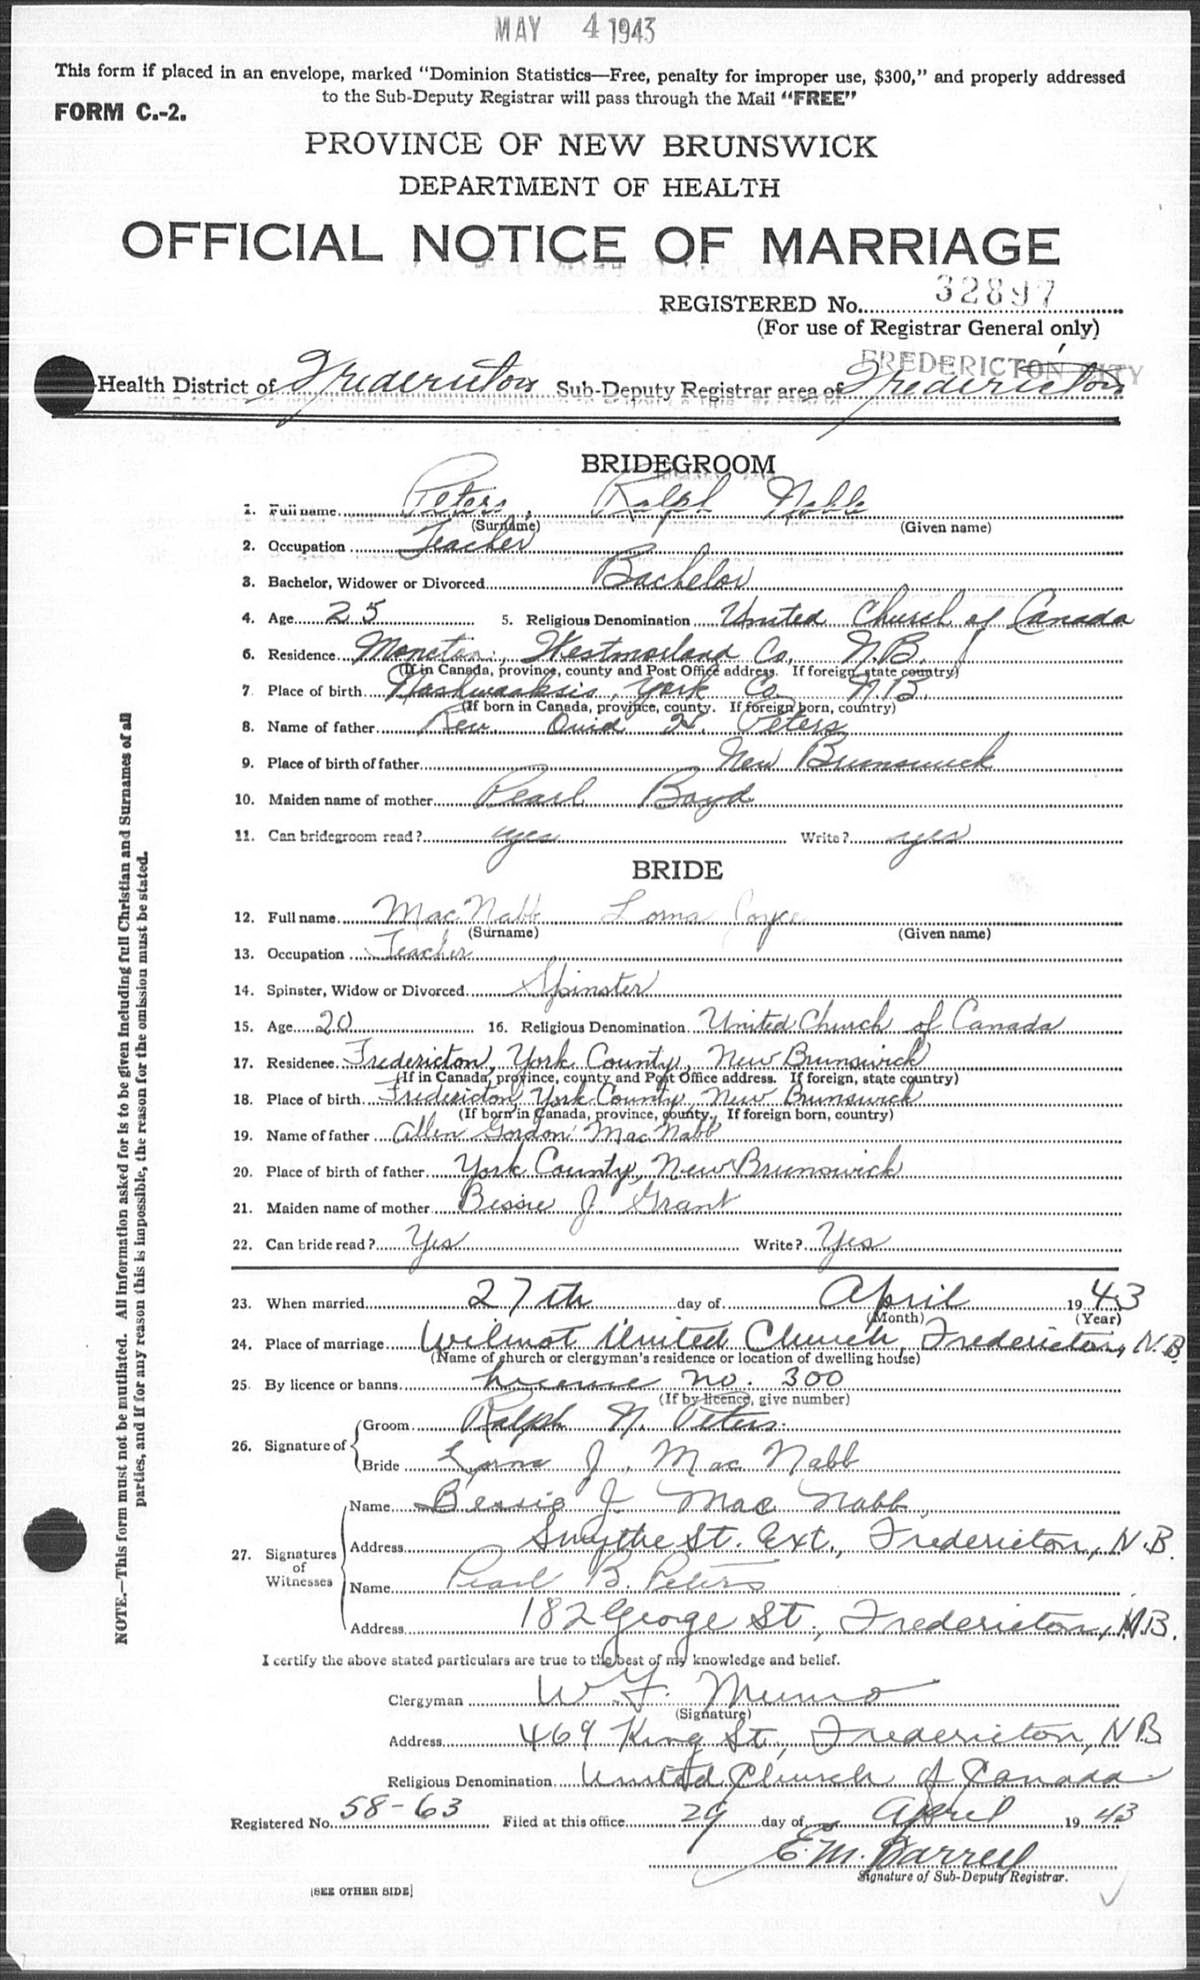 MAY 4 1943
This form if placed in an envelope, marked “Dominion Statistics—Free, penalty for improper use, $300,” and properly addressed
to the Sub-Deputy Registrar will pass through the Mail “FREE”
FORM C.-2.
PROVINCE OF NEW BRUNSWICK
DEPARTMENT OF HEALTH
OFFICIAL NOTICE OF MARRIAGE
REGISTERED No. 32897
(For use of Registrar General only)
FREDERICTON CITY
Health District of Fredericton Sub-Deputy Registrar area of Fredericton
BRIDEGROOM
1. Full name Peters, Ralph Noble
(Surname) (Given name)
2. Occupation Teacher
3. Bachelor, Widower or Divorced Bachelor
4. Age 25 5. Religious Denomination United Church of Canada
6. Residence Moncton, Westmorland Co, N.B.
(If in Canada, province, county and Post Office address. If foreign, state country)
7. Place of birth Nashwaaksis, York Co N.B.
(If born in Canada, province, county. If foreign born, country)
8. Name of father Rev. Ovid H. Peters
9. Place of birth of father New Brunswick
10. Maiden name of mother Pearl Boyd
11. Can bridegroom read? yes Write? yes
BRIDE
12. Full name MacNabb Lorna Joyce
(Surname) (Given name)
13. Occupation Teacher
14. Spinster, Widow or Divorced Spinster
15. Age 20 16. Religious Denomination United Church of Canada
17. Residence Fredericton, York County, New Brunswick
(If in Canada, province, county and Post Office address. If foreign, state country)
18. Place of birth Fredericton, York County, New Brunswick
(If born in Canada, province, county. If foreign born, country)
19. Name of father Allen Gordon MacNabb
20. Place of birth of father York County, New Brunswick
21. Maiden name of mother Bessie J. Grant
22. Can bride read? Yes Write? Yes
23. When married 27th day of April 1943
(Month) (Year)
24. Place of marriage Wilmot United Church, Fredericton, N.B.
(Name of church or clergyman's residence or location of dwelling house)
25. By licence or banns License no. 300
(If by licence, give number)
26. Signature of Groom Ralph N. Peters.
Bride Lorna J. MacNabb
27. Signatures of Witnesses
Name Bessie J MacNabb
Address Smythe St. Ext., Fredericton, N.B.
Name Pearl B. Peters
Address 182 George St., Fredericton, N.B.
I certify the above stated particulars are true to the best of my knowledge and belief.
Clergyman W. F. Munro
(Signature)
Address 469 King St., Fredericton, N B
Religious Denomination United Church of Canada
Registered No. 58-63 Filed at this office 29 day of April 1943
E. M. Barrell
Signature of Sub-Deputy Registrar.
[SEE OTHER SIDE]
NOTE.—This form must not be mutilated. All information asked for is to be given including full Christian and Surnames of all
parties, and if for any reason this is impossible, the reason for the omission must be stated.